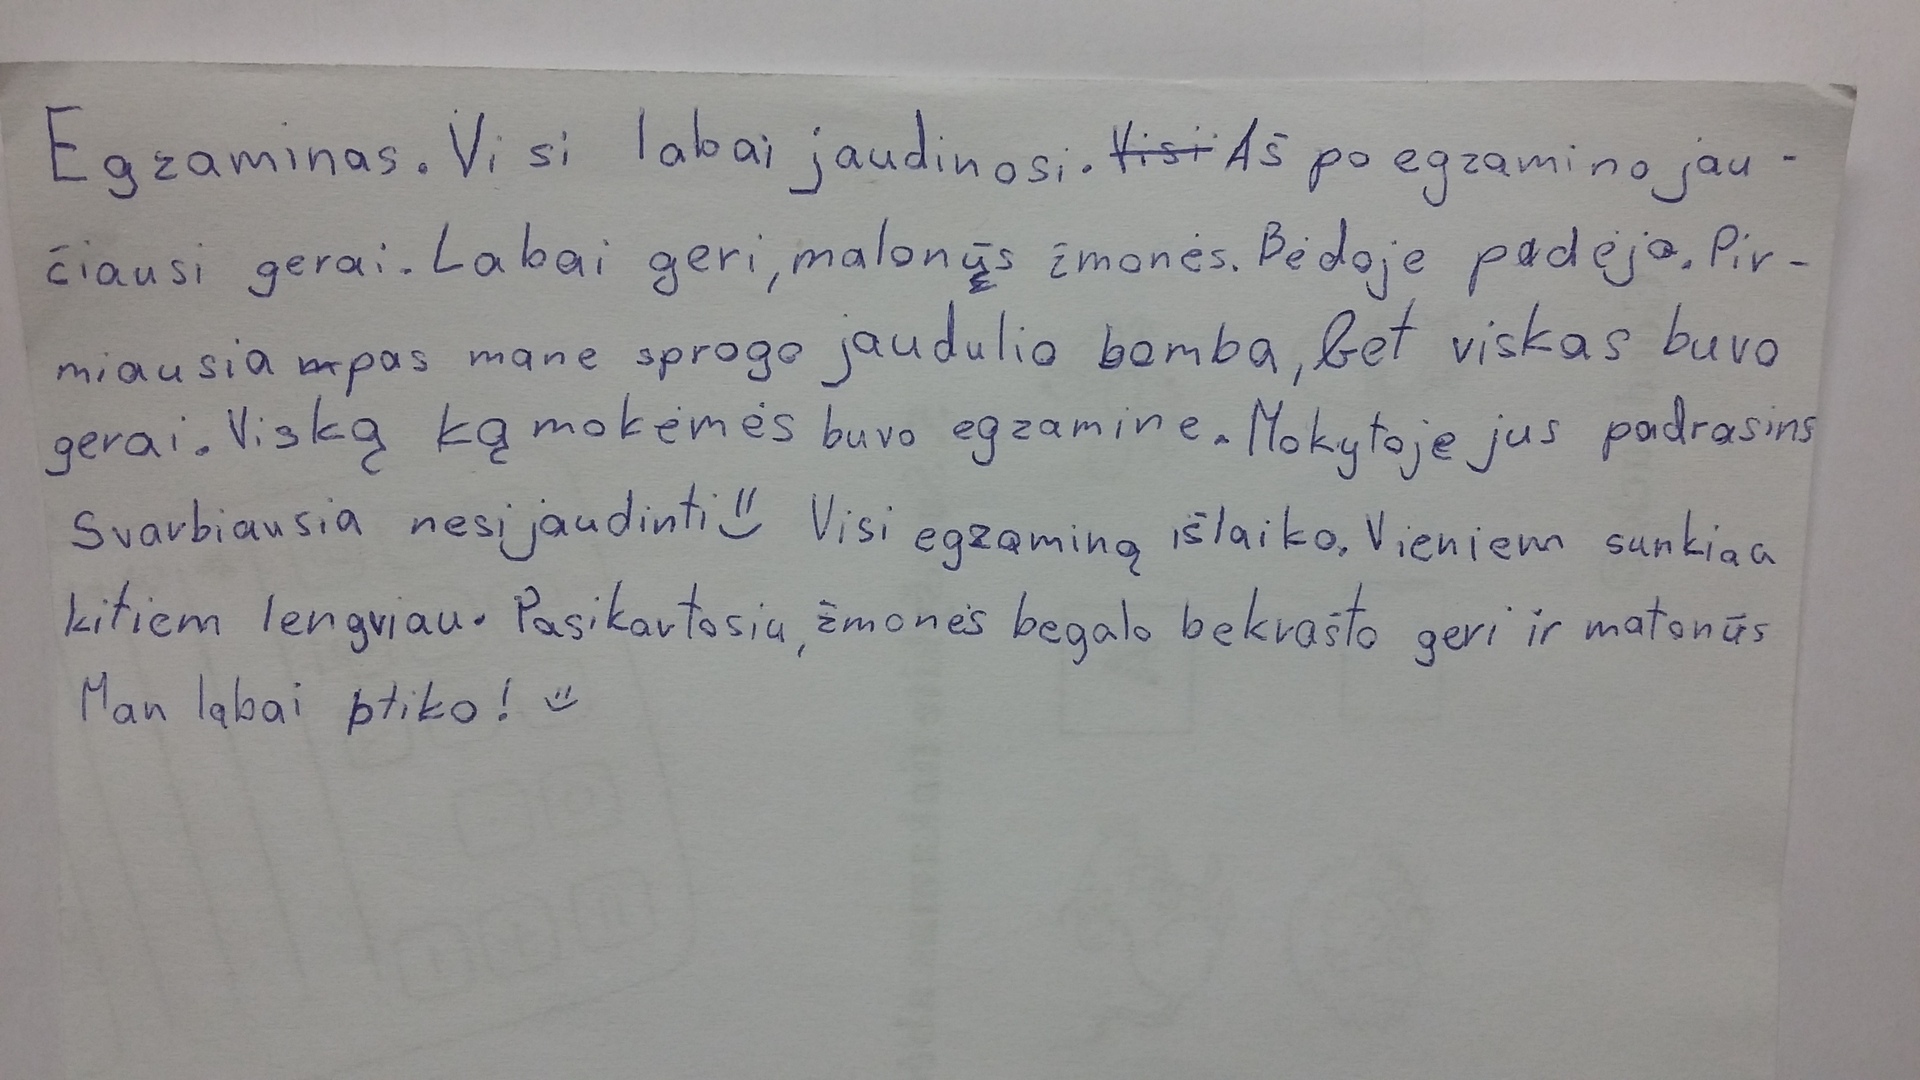 Egzaminas. Visi labai jaudinosi. Visi Aš po egzamino jau-
čiausi gerai. Labai geri, malonūs žmonės. Bėdoje padėjo. Pir-
miausia pas mane sprogo jaudulio bomba, bet viskas buvo
gerai. Viską ką mokėmės buvo egzamine. Mokytoje jus padrasins
Svarbiausia nesijaudinti Visi egzaminą išlaiko. Vieniem sunkiaa
kitiem lengviau. Pasikartosiu, žmonės begalo bekrašto geri ir matonūs
Man labai ptiko!